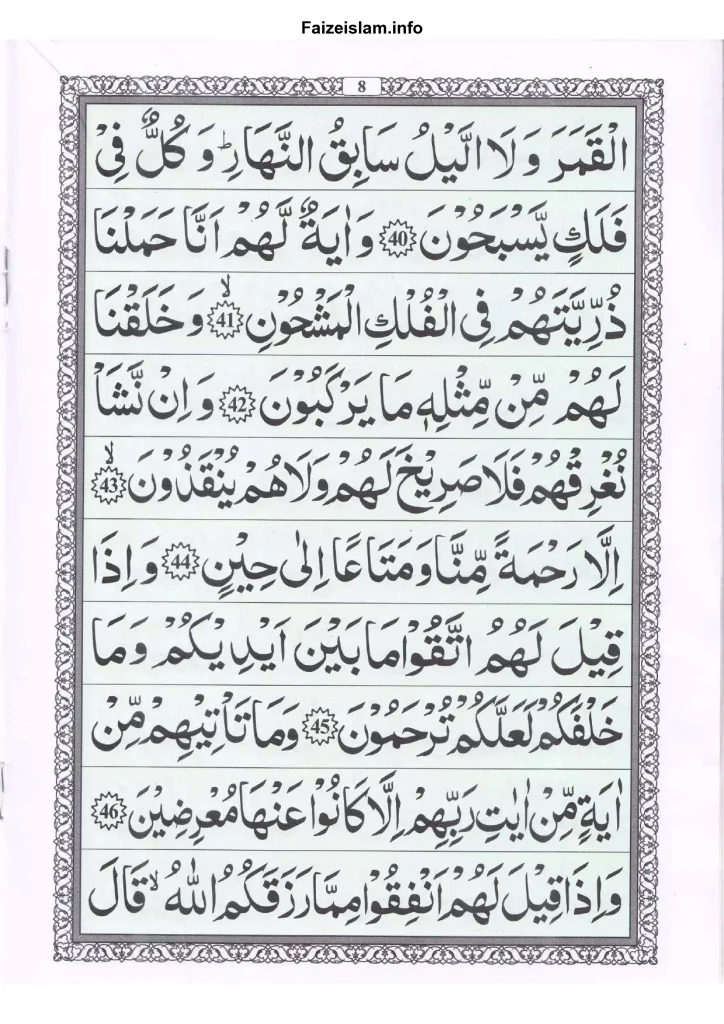 Faizeislam.info
8
الْقَمَرَ وَلَا الَّيْلُ سَابِقُ النَّهَارِ ؕ وَ كُلٌّ فِیْ
فَلَكٍ یَّسْبَحُوْنَ 40 وَ اٰیَةٌ لَّهُمْ اَنَّا حَمَلْنَا
ذُرِّیَّتَهُمْ فِی الْفُلْكِ الْمَشْحُوْنِ ۙ 41 وَ خَلَقْنَا
لَهُمْ مِّنْ مِّثْلِهٖ مَا یَرْكَبُوْنَ 42 وَ اِنْ نَّشَاْ
نُغْرِقْهُمْ فَلَا صَرِیْخَ لَهُمْ وَلَا هُمْ یُنْقَذُوْنَ ۙ 43
اِلَّا رَحْمَةً مِّنَّا وَ مَتَاعًا اِلٰى حِیْنٍ 44 وَ اِذَا
قِیْلَ لَهُمُ اتَّقُوْا مَا بَیْنَ اَیْدِیْكُمْ وَ مَا
خَلْفَكُمْ لَعَلَّكُمْ تُرْحَمُوْنَ 45 وَ مَا تَاْتِیْهِمْ مِّنْ
اٰیَةٍ مِّنْ اٰیٰتِ رَبِّهِمْ اِلَّا كَانُوْا عَنْهَا مُعْرِضِیْنَ 46
وَ اِذَا قِیْلَ لَهُمْ اَنْفِقُوْا مِمَّا رَزَقَكُمُ اللّٰهُ ۙ قَالَ